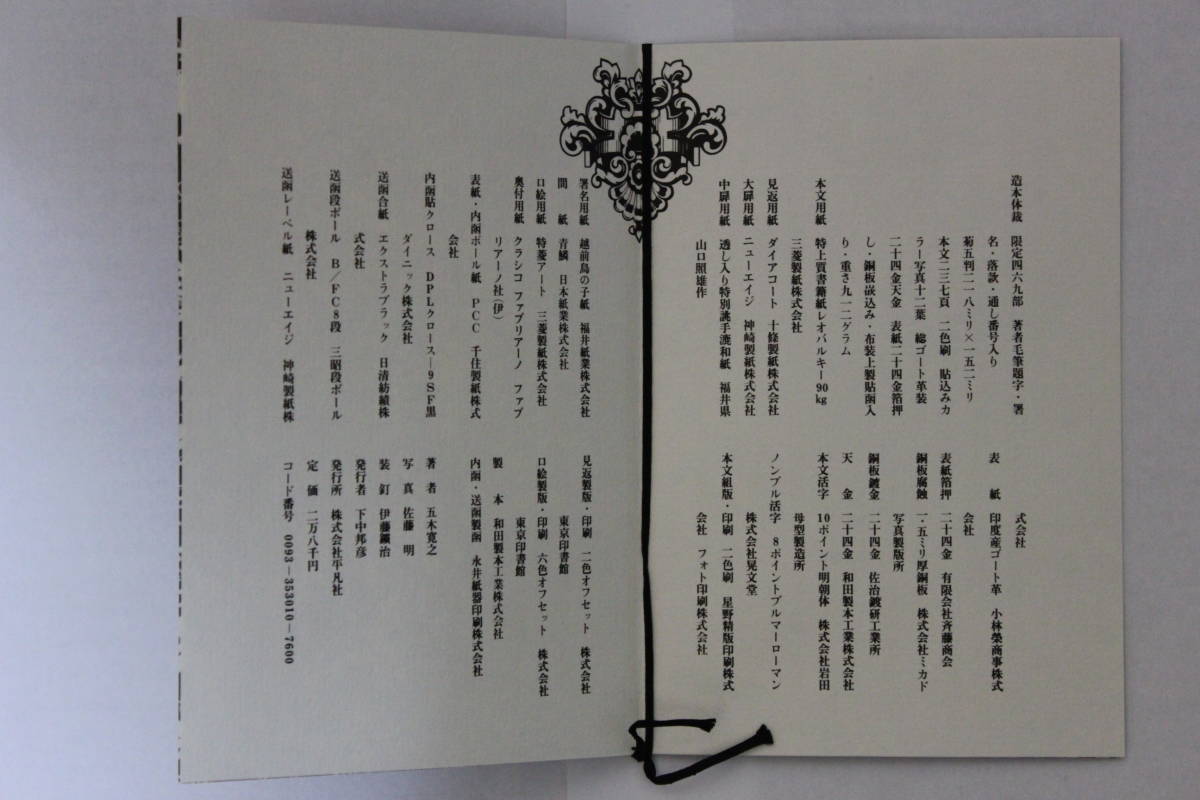 造本体裁　限定四六九部　著者毛筆題字・署
名・落款・通し番号入り
菊五判二一八ミリ×一五二ミリ
本文二三七頁　二色刷　貼込みカ
ラー写真十二葉　総ゴート革装
二十四金天金　表紙二十四金箔押
し・銅板嵌込み・布装上製貼函入
り・重さ九一二グラム
本文用紙　特上質書籍紙レオバルキー90kg
三菱製紙株式会社
見返用紙　ダイアコート　十條製紙株式会社
大扉用紙　ニューエイジ　神崎製紙株式会社
中扉用紙　透し入り特別誂手漉和紙　福井県
山口照雄作
署名用紙　越前鳥の子紙　福井紙業株式会社
間　　紙　青鱗　日本紙業株式会社
口絵用紙　特菱アート　三菱製紙株式会社
奥付用紙　クラシコ　ファブリアーノ　ファブ
リアーノ社（伊）
表紙・内函ボール紙　PCC　千住製紙株式
会社
内函貼クロース　DPLクロース―9SF黒
ダイニック株式会社
送函合紙　エクストラブラック　日清紡績株
式会社
送函段ボール　B／FC8段　三昭段ボール
株式会社
送函レーベル紙　ニューエイジ　神崎製紙株
式会社
表　　紙　印度産ゴート革　小林榮商事株式
会社
表紙箔押　二十四金　有限会社斉藤商会
銅板腐蝕　一・五ミリ厚銅板　株式会社ミカド
写真製版所
銅板鍍金　二十四金　佐治鍍研工業所
天　　金　二十四金　和田製本工業株式会社
本文活字　10ポイント明朝体　株式会社岩田
母型製造所
ノンブル活字　8ポイントブルマーローマン
株式会社晃文堂
本文組版・印刷　二色刷　星野精版印刷株式
会社　フォト印刷株式会社
見返製版・印刷　二色オフセット　株式会社
東京印書館
口絵製版・印刷　六色オフセット　株式会社
東京印書館
製　　本　和田製本工業株式会社
内函・送函製函　永井紙器印刷株式会社
著　者　五木寛之
写　真　佐藤　明
装　釘　伊藤鑛治
発行者　下中邦彦
発行所　株式会社平凡社
定　価　二万八千円
コード番号　0093－353010－7600